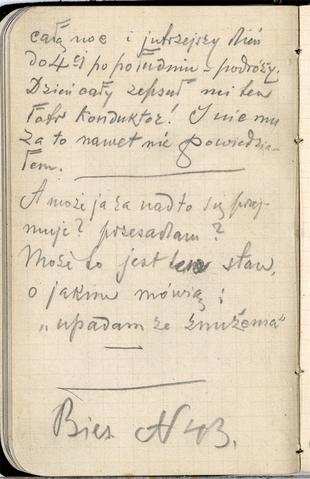 całą noc i jutrzejszy dzień
do 4 ej po południu – podróży.
Dzień cały zepsuł mi ten
łotr konduktor! I nic mu
za to nawet nie powiedzia-
łem.
A może ja za nadto się przej-
muję? przesadzam?
Może to jest ten stan,
o jakim mówią:
„upadam ze znużenia"
Bies N 43.